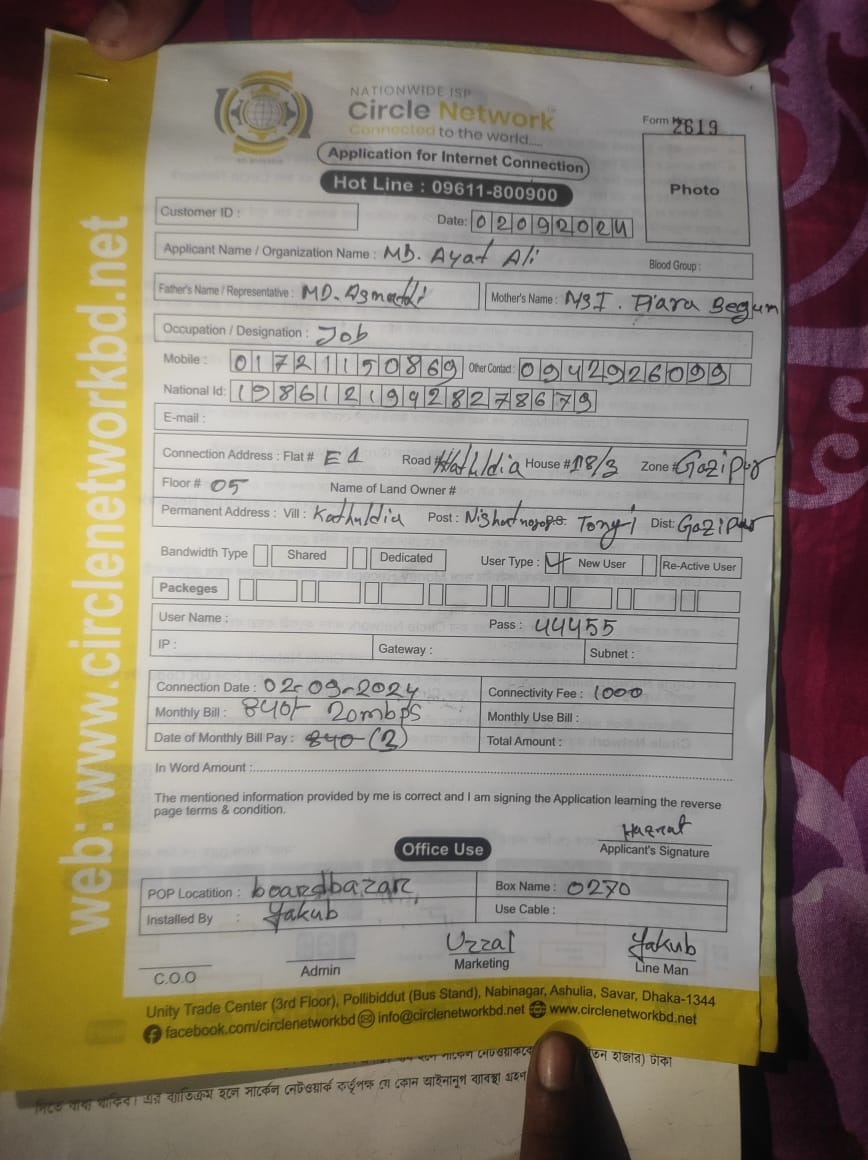 NATIONWIDE ISP
Circle Network
Connected to the world.....
Application for Internet Connection
Hot Line : 09611-800900
Form 2619
Photo
Customer ID :
Date: 02092024
Applicant Name / Organization Name : MD. Ayat Ali Blood Group :
Father's Name / Representative : MD. Mother's Name : Piara Begum
Occupation / Designation : Job
Mobile : 01721150869 Other Contact : 0942926099
National Id: 19861219928278679
E-mail :
Connection Address : Flat # E1 Road # House # 18/3 Zone # Gazipur
Floor # 05 Name of Land Owner #
Permanent Address : Vill : Kathuldia Post : Tongi Dist: Gazipur
Bandwidth Type Shared Dedicated User Type : New User Re-Active User
Packeges
User Name : Pass : 44455
IP : Gateway : Subnet :
Connection Date : 02-09-2024 Connectivity Fee : 1000
Monthly Bill : 840/- 20mbps Monthly Use Bill :
Date of Monthly Bill Pay : 840 (3) Total Amount :
In Word Amount :
The mentioned information provided by me is correct and I am signing the Application learning the reverse
page terms & condition.
Hazrat
Applicant's Signature
Office Use
POP Locatition : boardbazar Box Name : 0270
Installed By : Yakub Use Cable :
Uzzal Yakub
C.O.O Admin Marketing Line Man
Unity Trade Center (3rd Floor), Pollibiddut (Bus Stand), Nabinagar, Ashulia, Savar, Dhaka-1344
facebook.com/circlenetworkbd info@circlenetworkbd.net www.circlenetworkbd.net
web: www.circlenetworkbd.net
হাজার) টাকা
দিতে বাধ্য থাকিব। এর ব্যতিক্রম হলে সার্কেল নেটওয়ার্ক কর্তৃপক্ষ যে কোন আইনানুগ ব্যবস্থা গ্রহণ